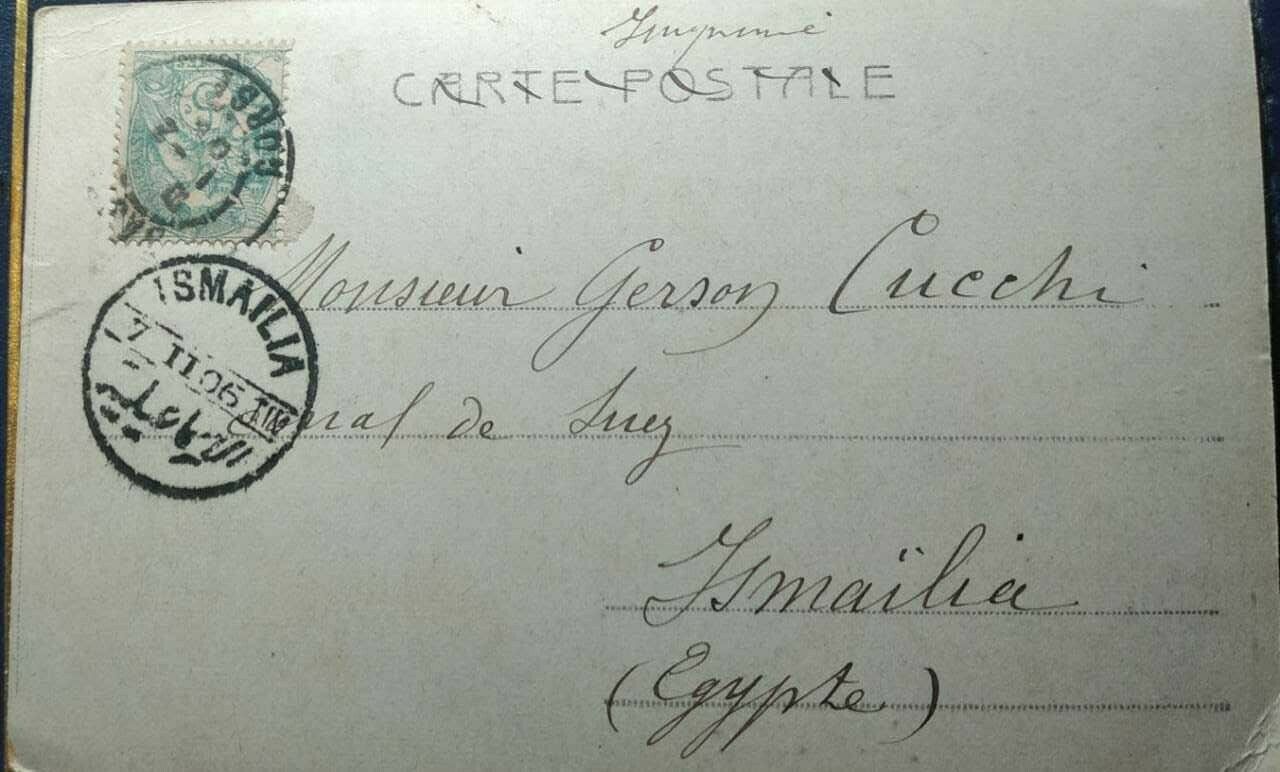 Imprimé
CARTE POSTALE
CORSE
ISMAILIA
7 II 06
Monsieur Gerson Cucchi
Canal de Suez
Ismaïlia
(Egypte)